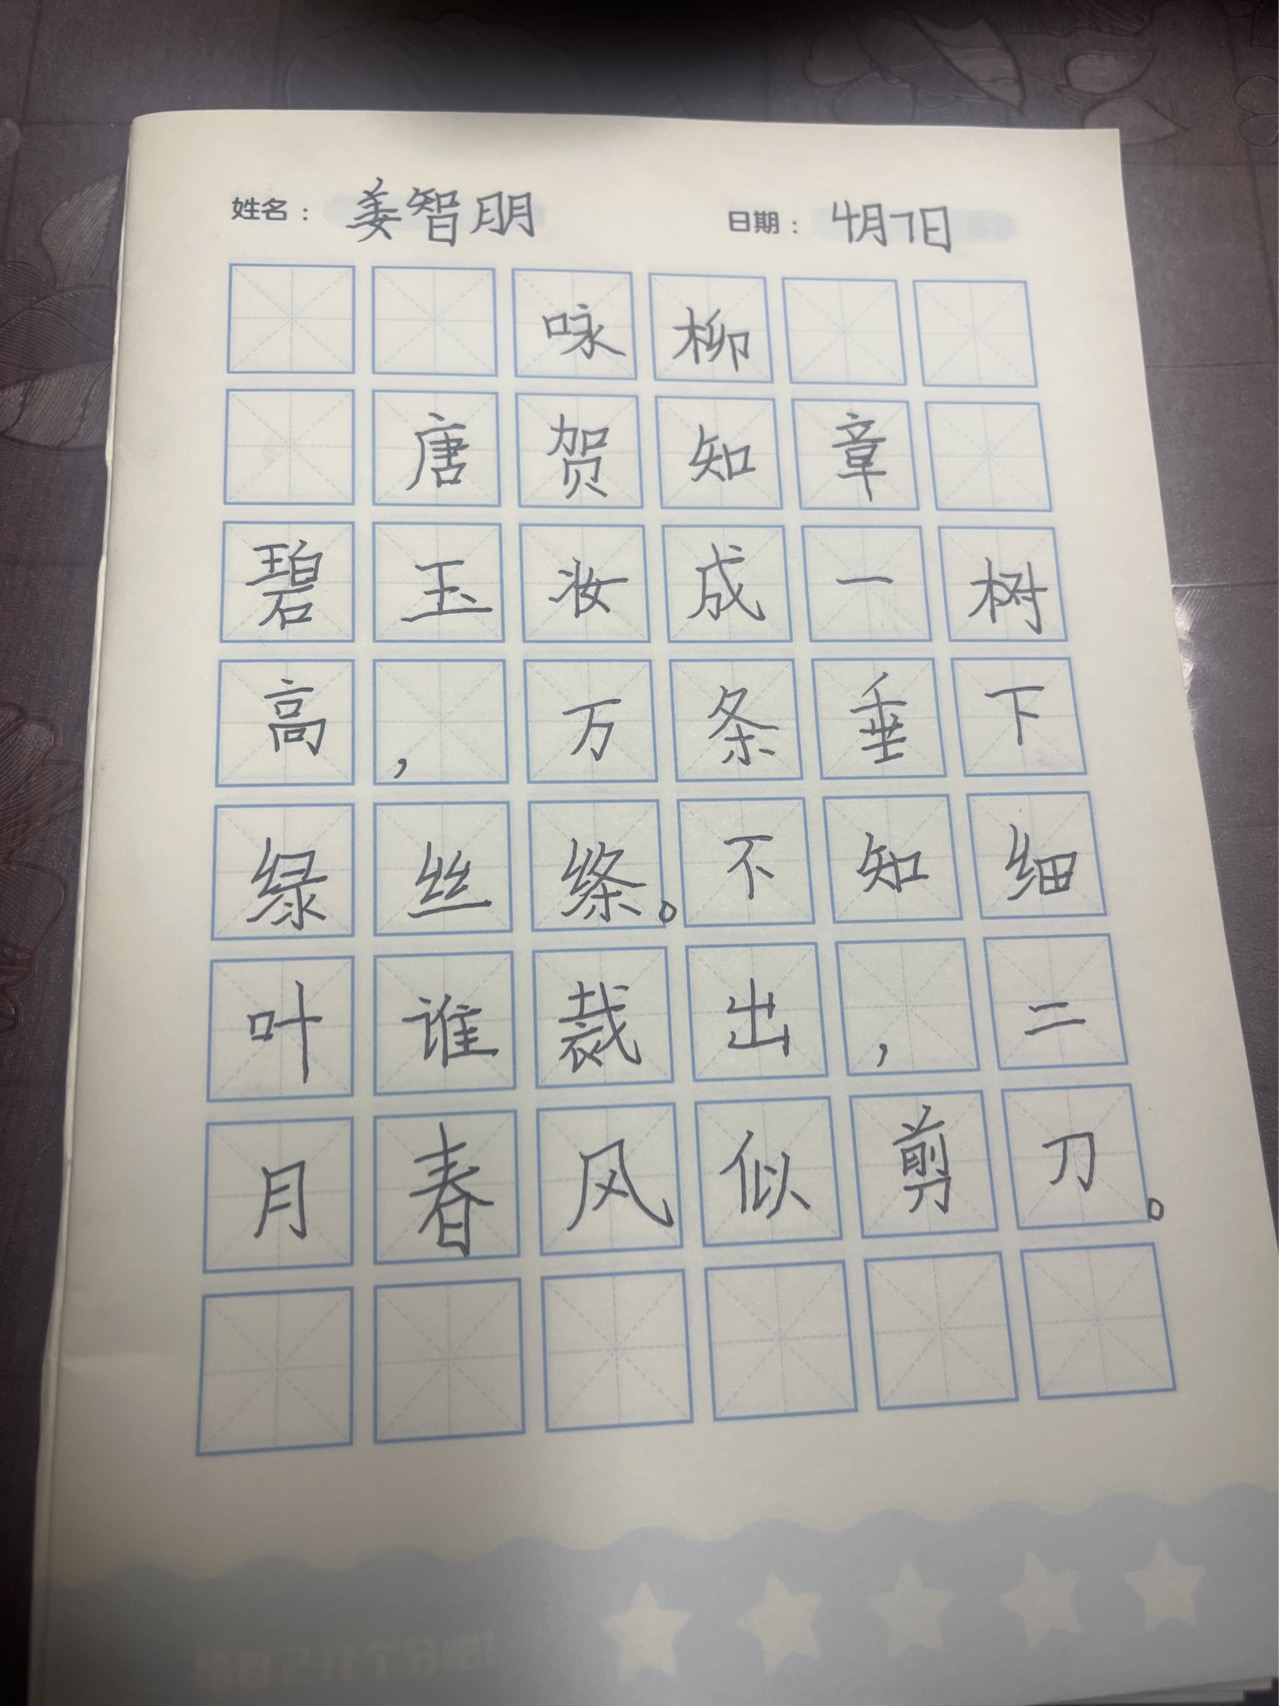 姓名：姜智朋 日期：4月7日
咏柳
唐贺知章
碧玉妆成一树
高，万条垂下
绿丝绦。不知细
叶谁裁出，二
月春风似剪刀。